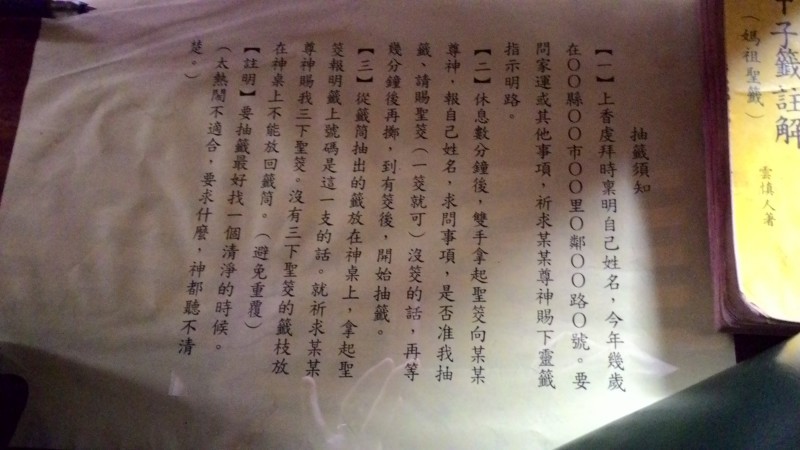 抽籤須知
【一】上香虔拜時稟明自己姓名，今年幾歲
在〇〇縣〇〇市〇〇里〇鄰〇〇路〇號。要
問家運或其他事項，祈求某某尊神賜下靈籤
指示明路。
【二】休息數分鐘後，雙手拿起聖筊向某某
尊神，報自己姓名，求問事項，是否准我抽
籤、請賜聖筊（一筊就可）沒筊的話，再等
幾分鐘後再擲，到有筊後，開始抽籤。
【三】從籤筒抽出的籤放在神桌上，拿起聖
筊報明籤上號碼是這一支的話。就祈求某某
尊神賜我三下聖筊。沒有三下聖筊的籤枝放
在神桌上不能放回籤筒。（避免重覆）
【註明】要抽籤最好找一個清淨的時候。
（太熱鬧不適合，要求什麼，神都聽不清
楚。）
子籤註解
（媽祖聖籤）
雲慎人著